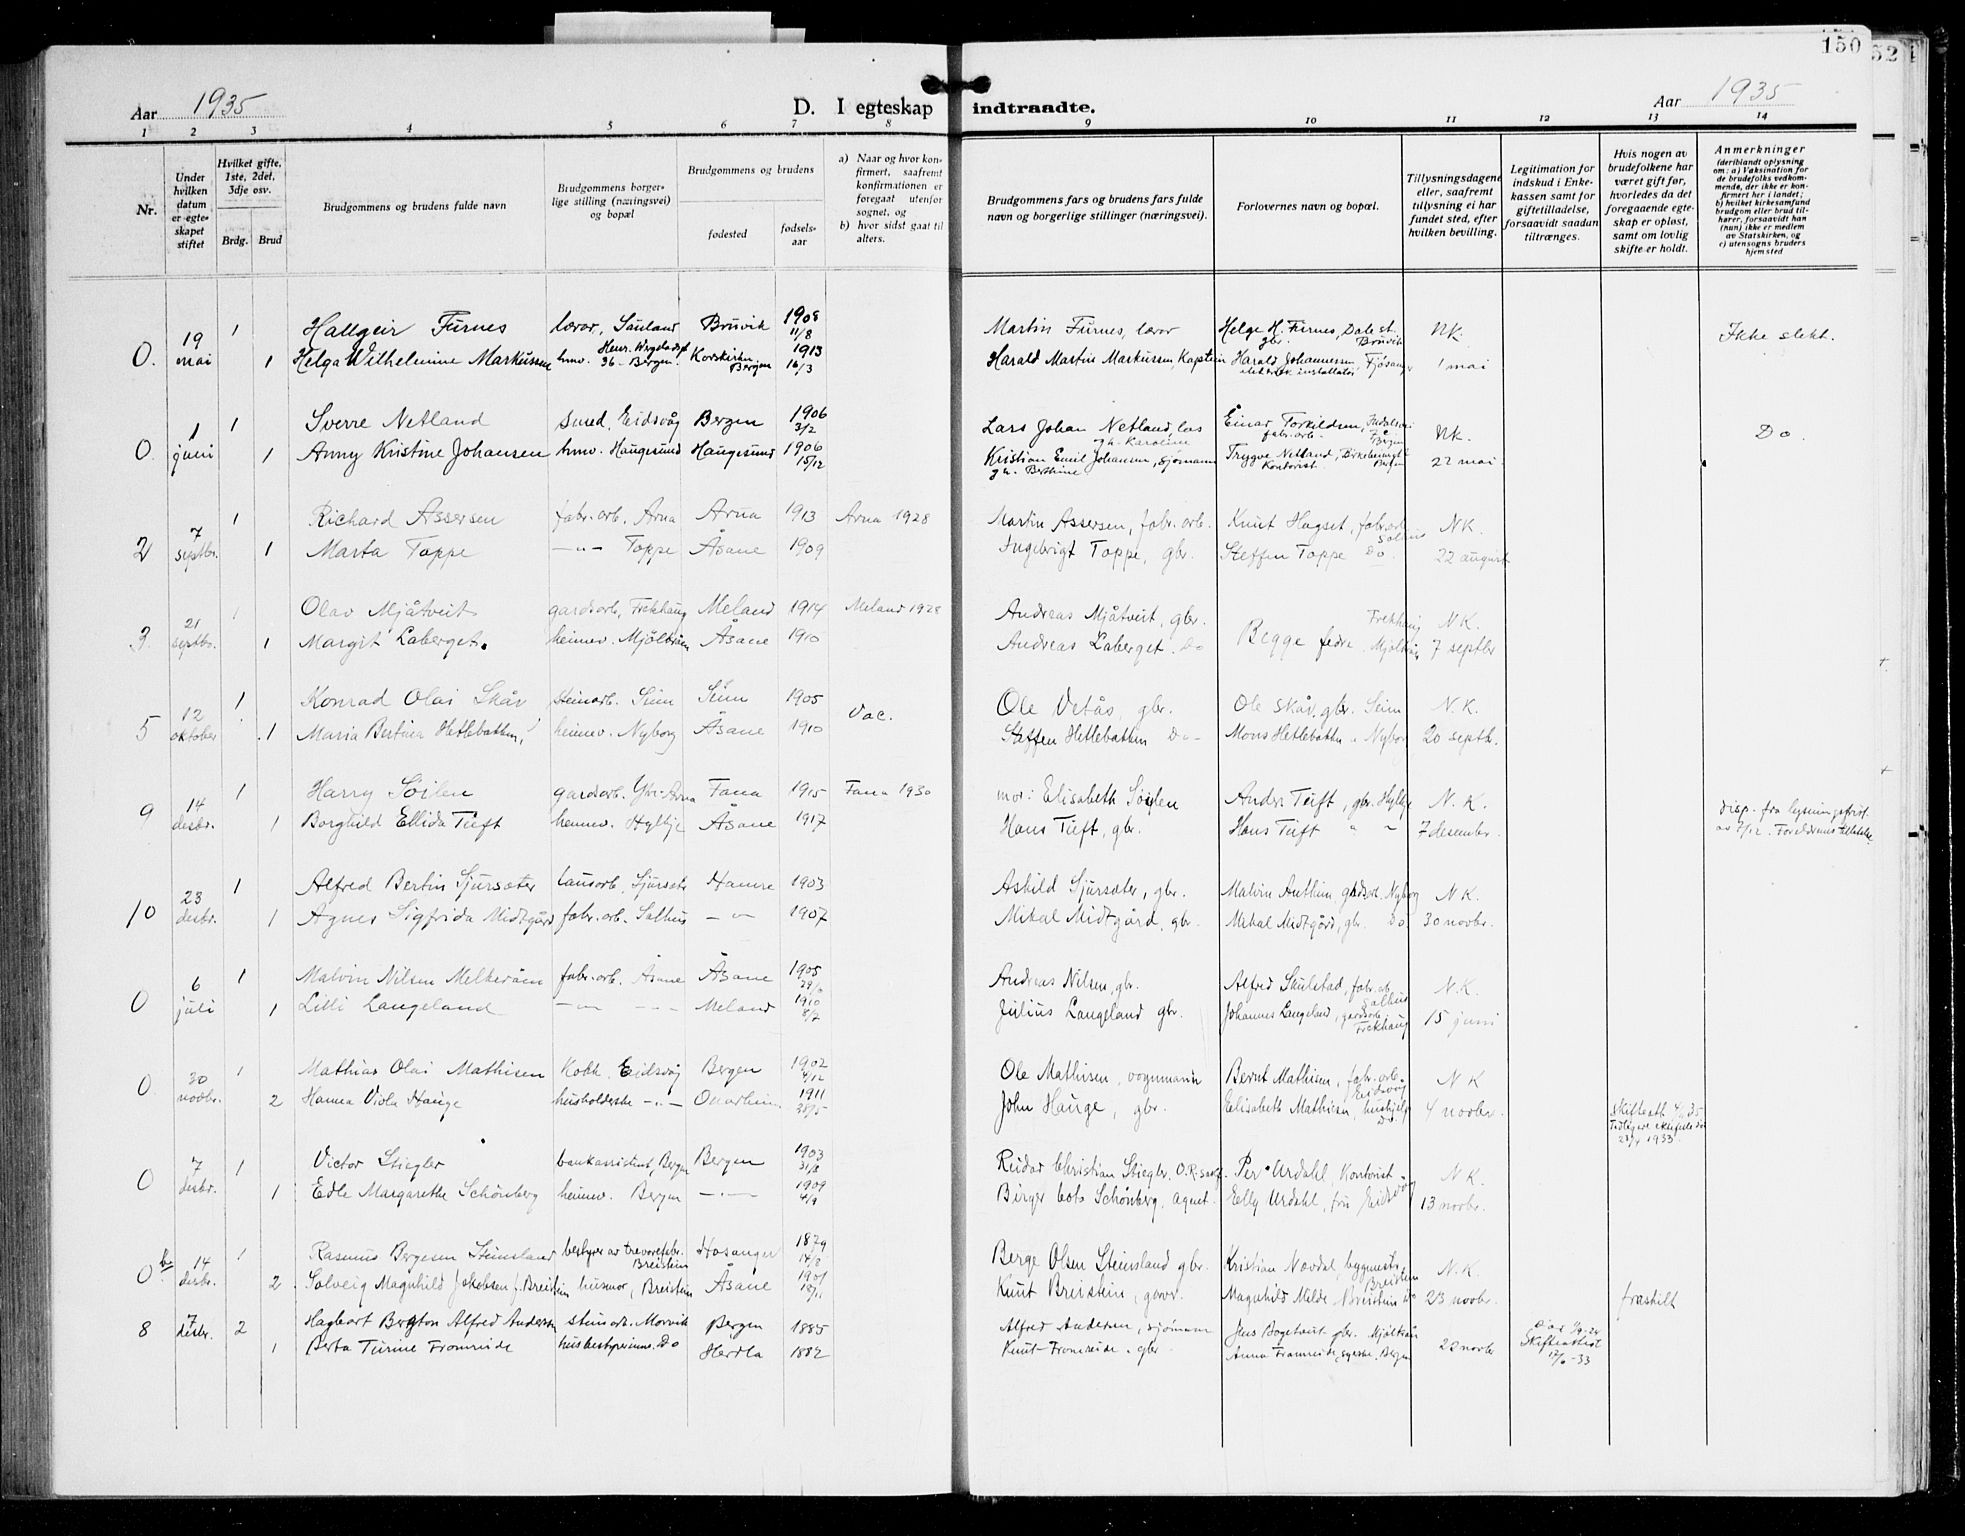 150
52
Aar 1935
D. I egteskap indtraadte.
Aar 1935
1 2 3 4 5 6 7 8 9 10 11 12 13 14
Nr.
Under hvilken datum er egteskapet stiftet
Hvilket gifte, 1ste, 2det, 3dje osv.
Brdg. Brud
Brudgommens og brudens fulde navn
Brudgommens borgerlige stilling (næringsvei) og bopæl
Brudgommens og brudens
fødested
fødselsaar
a) Naar og hvor konfirmert, saafremt konfirmationen er foregaat utenfor sognet, og
b) hvor sidst gaat til alters.
Brudgommens fars og brudens fars fulde navn og borgerlige stillinger (næringsvei).
Forlovernes navn og bopæl.
Tillysningsdagene eller, saafremt tillysning ei har fundet sted, efter hvilken bevilling.
Legitimation for indskud i Enkekassen samt for giftetilladelse, forsaavidt saadan tiltrænges.
Hvis nogen av brudefolkene har været gift før, hvorledes da det foregaaende egteskap er opløst, samt om lovlig skifte er holdt.
Anmerkninger (deriblandt oplysning om: a) Vaksination for de brudefolks vedkommende, der ikke er konfirmert her i landet; b) hvilket kirkesamfund brudgom eller brud tilhører, forsaavidt han (hun) ikke er medlem av Statskirken, og c) utensogns bruders hjemsted
19 1 Hallgeir Furnes lærar, Sauland Bruvik 1908 11/8 Martin Furnes, lærar Helge H. Furnes, Dale st. gbr. Bruvik NK. Ikke slekt.
0. mai 1 Helga Wilhelmine Markussen hmv. 36 Bergen. Korskirken Bergen 1913 16/3 Harald Martin Markussen, Kaptein Harald Johannessen, Fjøsanger elektrisk installatør 1 mai
1 1 Sverre Netland smed, Eidsvåg Bergen 1906 3/2 Lars Johan Netland, g.h. Karoline Einar Torkildsen, fabr.arb. Bergen NK. Do.
0 juni 1 Anny Kristine Johansen hmv. Haugesund Haugesund 1906 15/12 Kristian Emil Johansen, sjømann g.h. Berthine Trygve Netland, Kontorist. Bergen 22 mai
7 1 Richard Assersen fabr.arb. Arna Arna 1913 Arna 1928 Martin Assersen, fabr.arb. Knut Hagset, fabr.arb. Salhus N.K.
2 septbr. 1 Marta Toppe -"- Toppe Åsane 1909 Ingebrigt Toppe, gbr. Steffen Toppe Do. 22 august
21 1 Olav Mjåtveit gardsarb, Frekhaug Meland 1914 Meland 1928 Andreas Mjåtveit, gbr. Frekhaug N.K.
3 septbr. 1 Margit Laberget. heimev. Mjølkråen Åsane 1910 Andreas Laberget. Do Begge fedre. Mjølkråen 7 septbr
12 1 Konrad Olai Skår steinarb. Seim Seim 1905 Vac. Ole Vetås, gbr. Ole Skår, gbr. Seim N.K.
5 oktober 1 Maria Bertina Hetlebakken heimev. Nyborg Åsane 1910 Steffen Hetlebakken Do - Mons Hetlebakken " Nyborg 20 septbr.
14 1 Harry Søilen gardsarb. Ytre-Arna Fana 1915 Fana 1930 mor: Elisabeth Søilen Anders Tuft, gbr. Hylkje N.K. Disp. fra lysningsfrist
9 desbr. 1 Borghild Ellida Tuft heimev. Hylkje Åsane 1917 Hans Tuft, gbr. Hans Tuft " " 7 desember. av 7/12. Foreldrenes tillatelse.
23 1 Alfred Bertin Sjursæter lausarb. Sjursæter Hamre 1903 Askild Sjursæter, gbr. Malvin Anthun gardsarb. Nyborg N.K.
10 desbr. 1 Agnes Sigfrida Midtgård fabr.arb. Salhus - " - 1907 Mikal Midtgård, gbr. Mikal Midtgård, gbr. Do 30 novbr.
6 1 Malvin Nilsen Melkeråen fabr.arb. Åsane Åsane 1905 Andreas Nilsen, gbr. Alfred Skulstad, fabr.arb. Salhus N.K.
0 juli 1 Lilli Langeland -"- -"- Meland 1910 8/7 Julius Langeland gbr. Johannes Langeland, gardsarb. Frekhaug 15 juni
30 1 Mathias Olai Mathisen Kokk Eidsvåg Bergen 1902 4/12 Ole Mathisen, vognmann Bernt Mathisen, fabr.arb. Eidsvåg N K
0 novbr. 2 Hanna Viola Hauge husholderske -"- Onarheim. 1911 28/5 John Hauge, gbr. Elisabeth Mathisen, hushjelp Do. 4 novbr. Skifteatt. 4/11 35 Tidligere ekteskap 1933
7 1 Victor Stiegler bankassistent, Bergen Bergen 1903 31/8 Reidar Christian Stiegler. O.R.sakf. Per Urdahl, Kontorist N.K.
0 desbr. 1 Edle Margarethe Schönberg heimev. Bergen -"- 1909 4/9 Birger Schönberg, agent. Elly Urdahl, fru Eidsvåg 13 novbr.
14 1 Rasmus Bergesen Steinsland bestyrer av trevarefabr. Breistein Hosanger 1879 14/8 Berge Olsen Steinsland gbr. Kristian Nævdal, byggmest. Breistein N.K.
0 desbr. 2 Solveig Magnhild Jakobsen f. Breistein husmor, Breistein Åsane 1901 Knut Breistein, garver. Magnhild Milde Breistein 23 novbr. fraskilt
7 2 Hagbart Bergton Alfred Andersen steinarb. Morvik Bergen 1885 Alfred Andersen, sjømann Jens Bogetveit gbr. Mjølkråen Skifteattest 12/6 -33
8 desbr. 1 Berta Turine Fromreide husbestyrerinne. Do Herdla 1882 Knut Fromreide. gbr. Anna Fromreide, syerske, Bergen 22 novbr